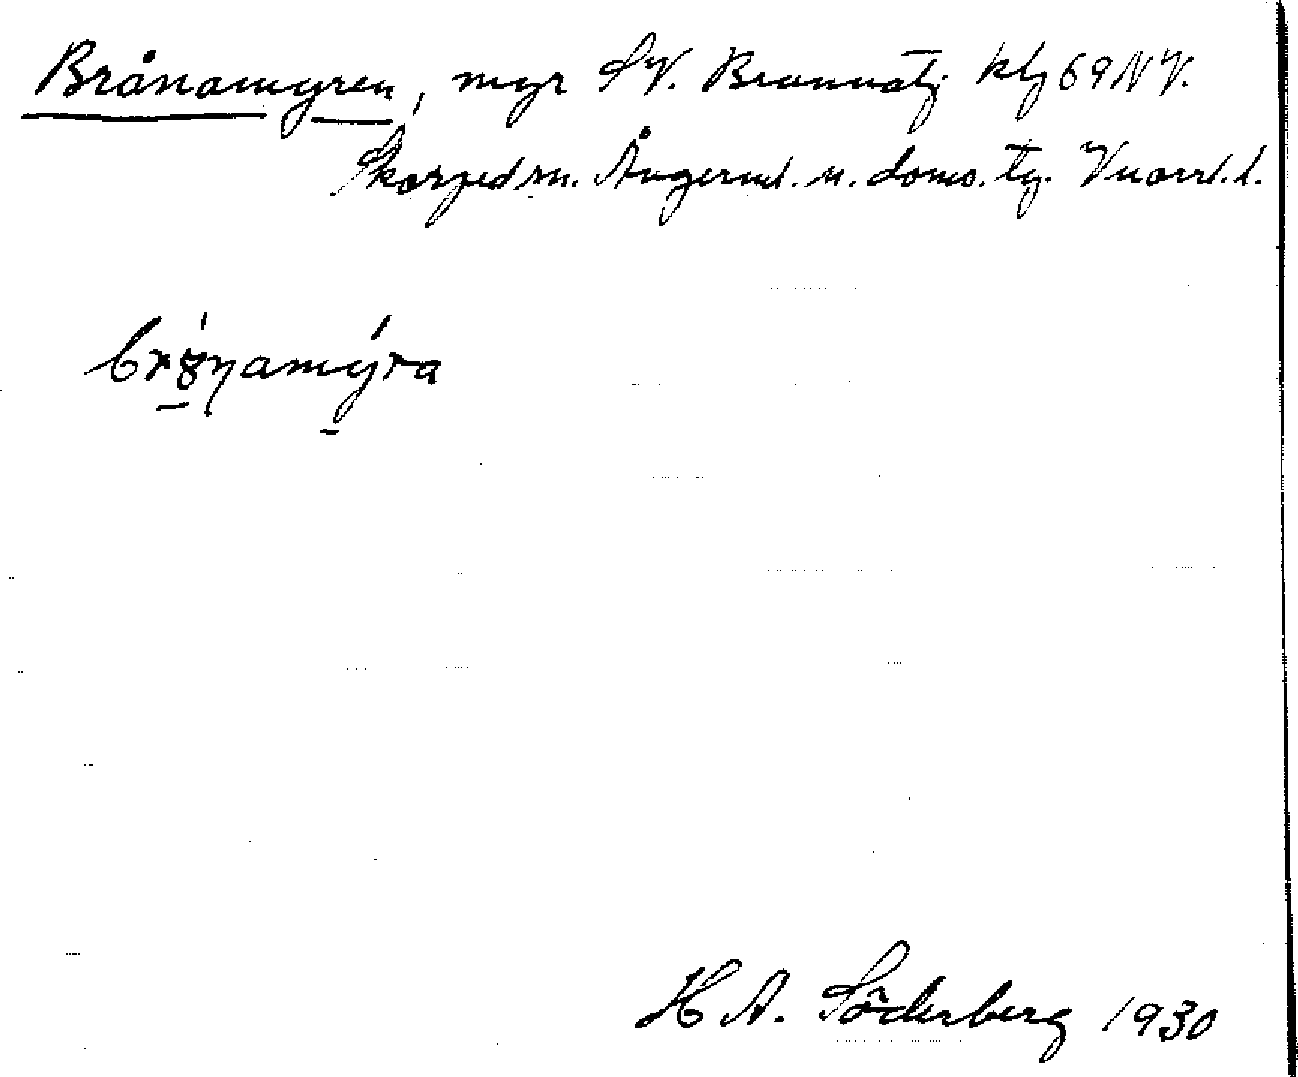 Brånamyren, myr SV. Brunnåtj. klg 69 NV.
Skorped sn. Ångerml. n. doms. tg. Vnorrl. l.
brånamýra
H A. Söderberg 1930